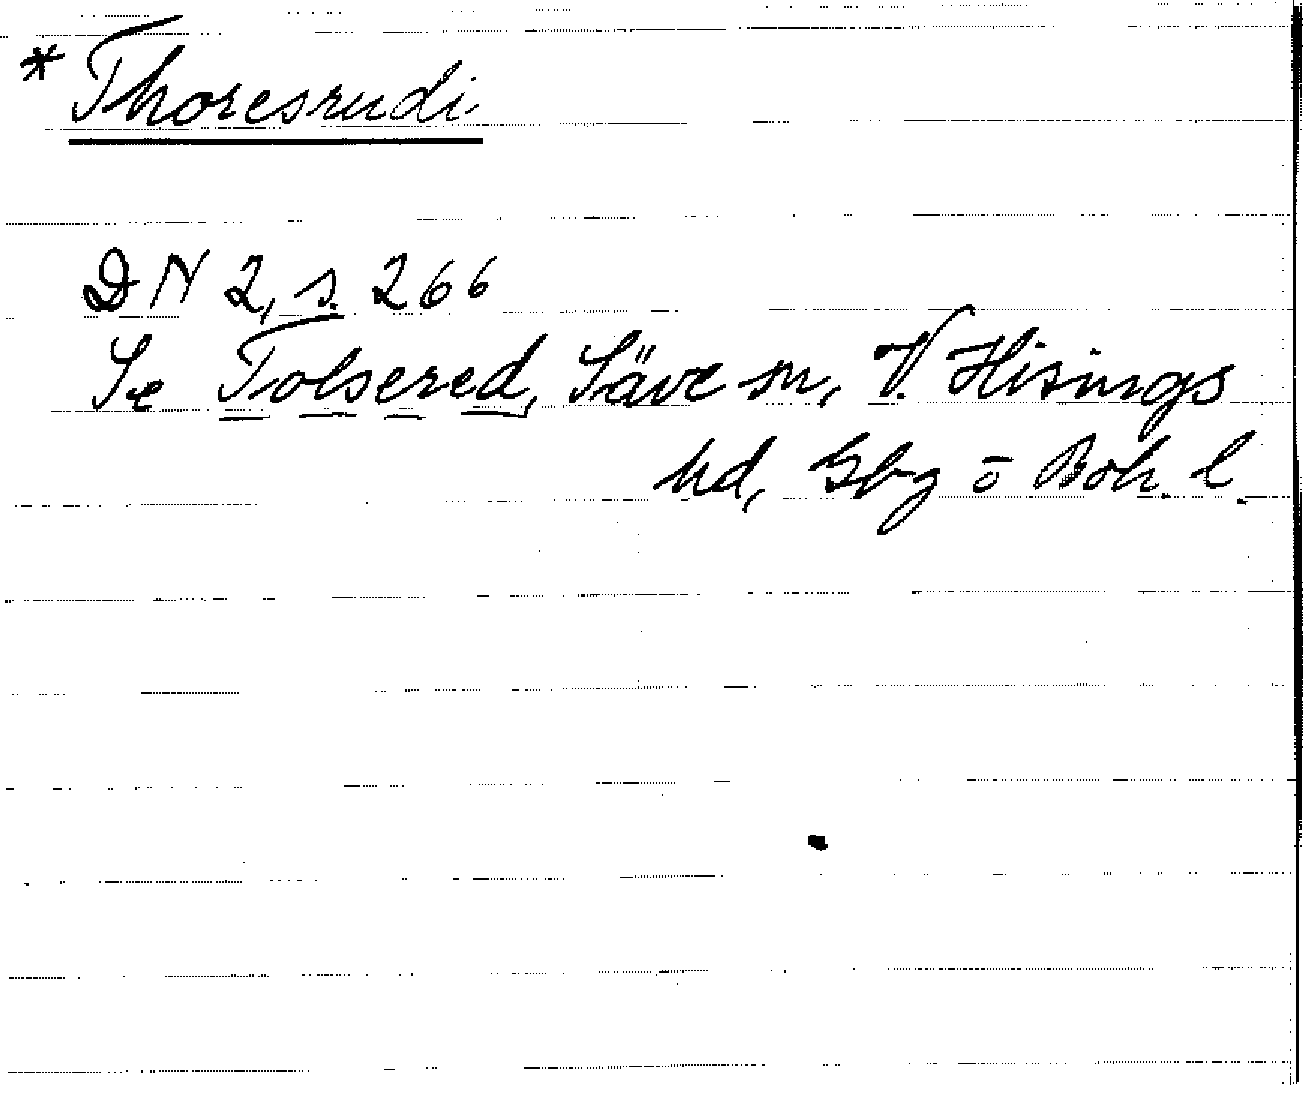 * Thoresrudi
DN 2, s. 266
Se Tolsered, Säve sn, V. Hisings
hd, Gbg o Boh. l.